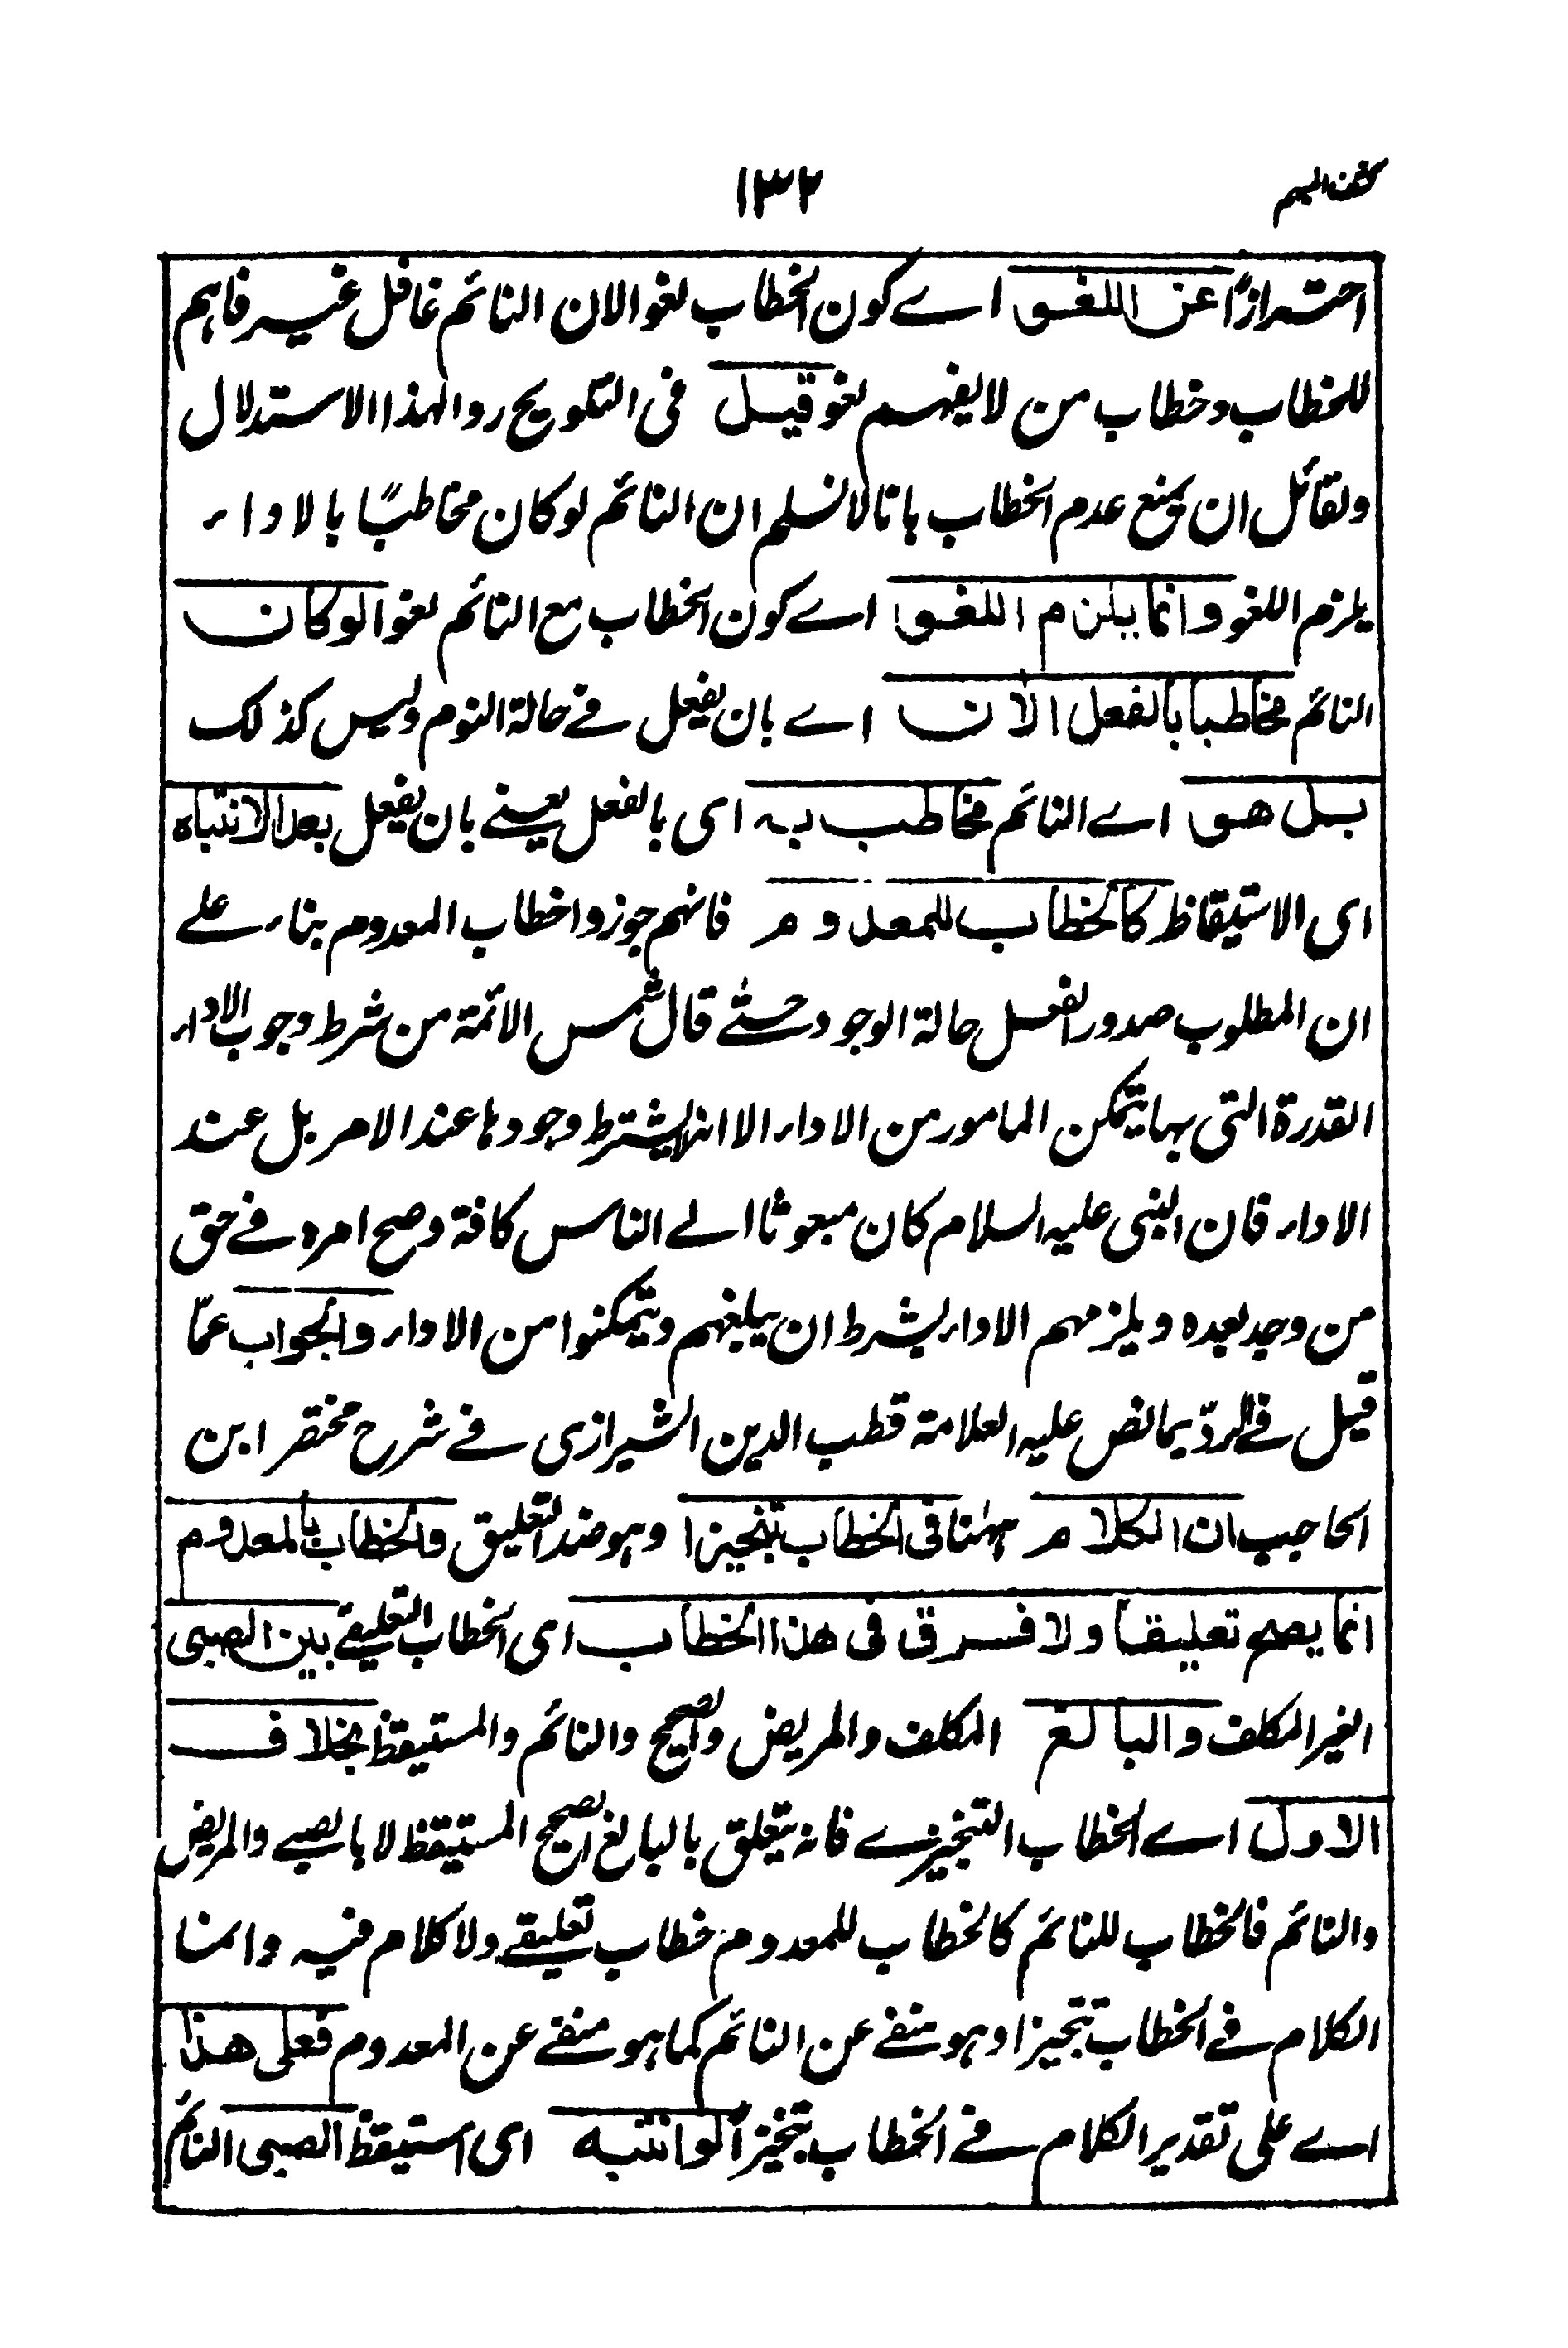 كشف المبهم
١٣٢
احترازًا عن اللغو اے كون الخطاب لغوا لان النائم غافل غير فاہم
للخطاب وخطاب من لا يفہم لغو قيل فى التلويح ردا لهذا الاستدلال
ولقائل ان يمنع عدم الخطاب بانا لا نسلم ان النائم لو كان مخاطبًا بالاداء
يلزم اللغو وانما يلزم اللغو اے كون الخطاب مع النائم لغوا لو كان
النائم مخاطبا بالفعل الآن اے بان يفعل فے حالة النوم وليس كذلك
بل هو اے النائم مخاطب به اى بالفعل يعنے بان يفعل بعد الانتباه
اى الاستيقاظ كالخطاب للمعدوم فانہم جوزوا خطاب المعدوم بناء علے
ان المطلوب صدور الفعل حالة الوجود حتے قال شمس الائمة من شرط وجوب الاداء
القدرة التى بہا يتمكن المامور من الاداء الا انہ لا يشترط وجودہا عند الامر بل عند
الاداء فان النبى عليه السلام كان مبعوثا الے الناس كافة وصح امره فے حق
من وجد بعده ويلزمہم الاداء بشرط ان يبلغہم ويتمكنوا من الاداء والجواب عمّا
قيل فے الردّ بما نص عليه العلامة قطب الدين الشيرازى فے شرح مختصر ابن
الحاجب ان الكلام ہٰہنا فى الخطاب تنجيزا وہو ضد التعليق والخطاب بالمعدوم
انما يصح تعليقا ولا فرق فى هذا الخطاب اى الخطاب التعليقے بين الصبى
الغير المكلف والبالغ المكلف والمريض والصحيح والنائم والمستيقظ بخلاف
الاول اے الخطاب التنجيزے فانه يتعلق بالبالغ الصحيح المستيقظ لا بالصبے والمريض
والنائم فالخطاب للنائم كالخطاب للمعدوم خطاب تعليقے ولا كلام فيه وانما
الكلام فے الخطاب تنجيزا وہو منفے عن النائم كما ہو منفے عن المعدوم فعلى هذا
اے على تقدير الكلام فے الخطاب تنجيزًا لو انتبه اى استيقظ الصبى النائم